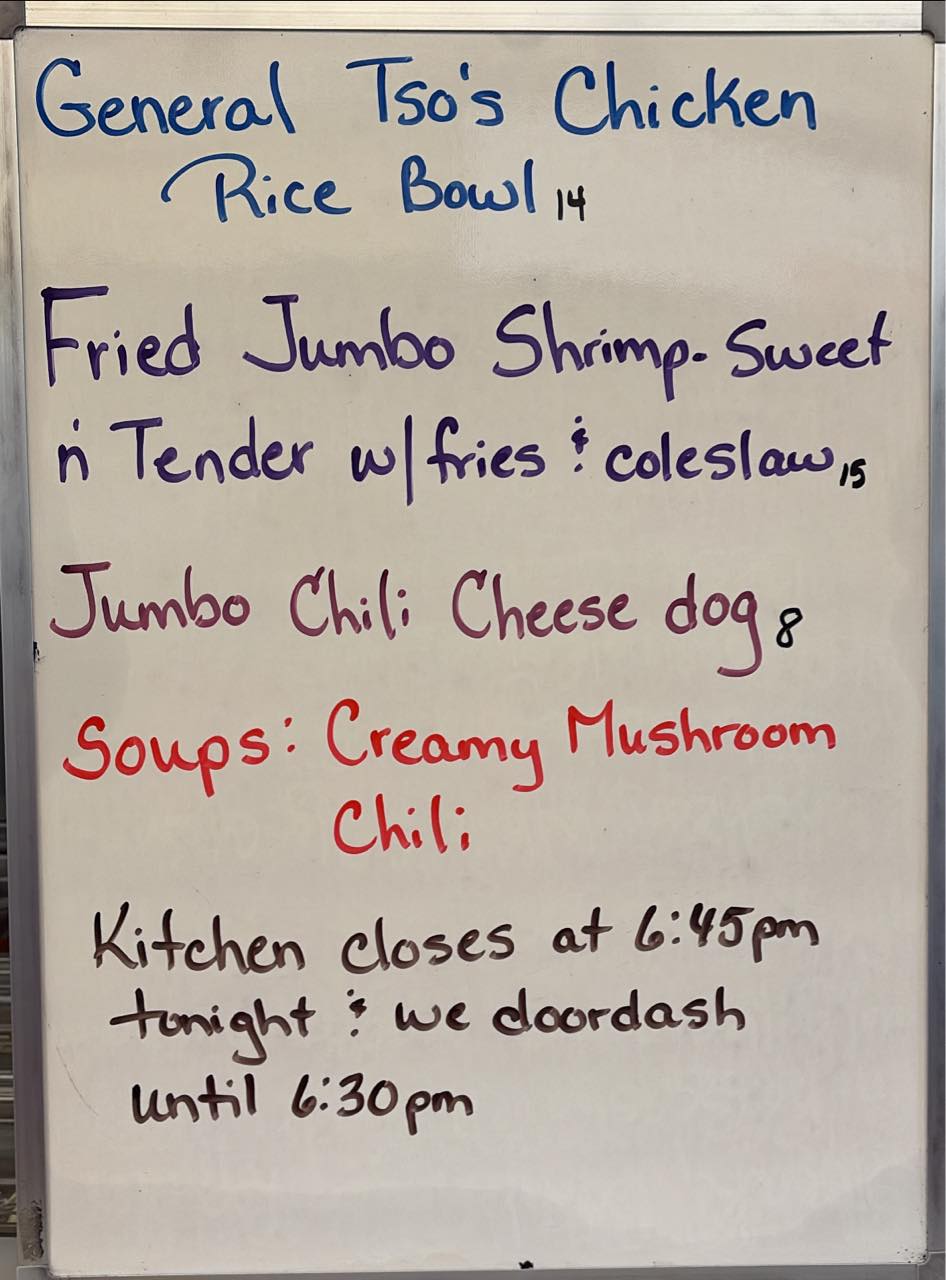 General Tso's Chicken
Rice Bowl 14
Fried Jumbo Shrimp- Sweet
n' Tender w/ fries & coleslaw 15
Jumbo Chili Cheese dog 8
Soups: Creamy Mushroom
Chili
Kitchen closes at 6:45pm
tonight & we doordash
until 6:30pm